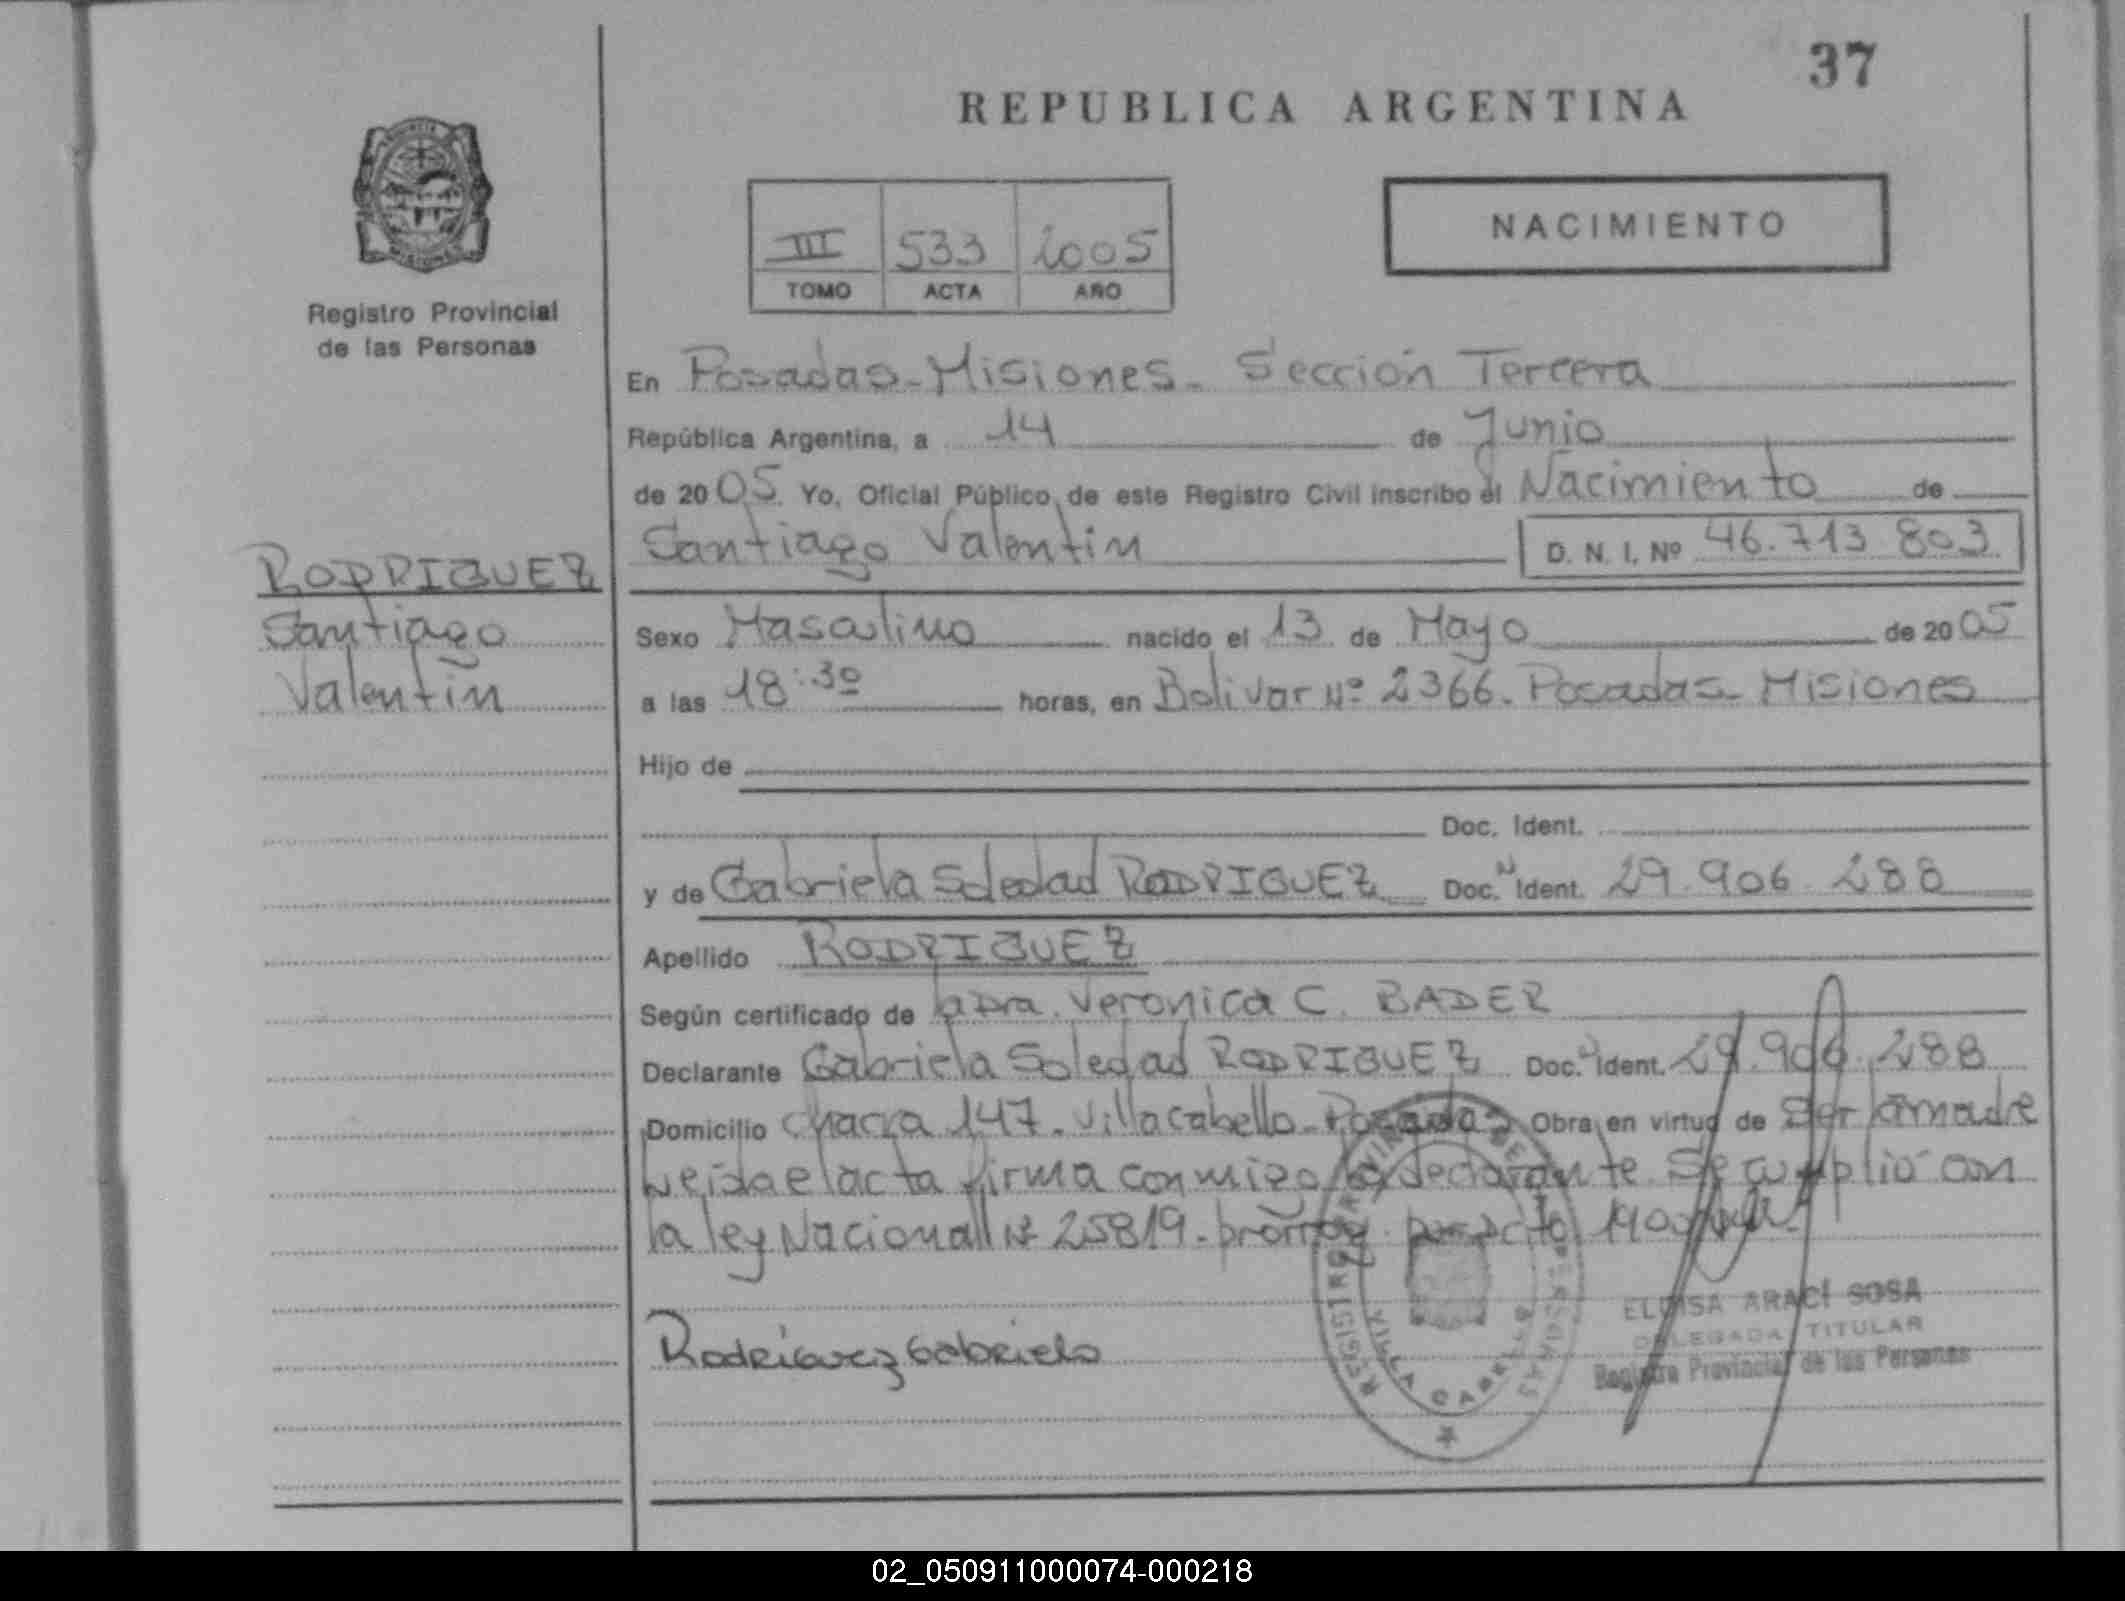 37
REPUBLICA ARGENTINA
NACIMIENTO
III 533 2005
TOMO ACTA AÑO
Registro Provincial
de las Personas
En Posadas - Misiones - Sección Tercera
República Argentina, a 14 de Junio
de 2005. Yo, Oficial Público de este Registro Civil inscribo el Nacimiento de
Santiago Valentin D. N. I. Nº 46.713 803
RODRIGUEZ
Santiago
Valentin
Sexo Masculino nacido el 13 de Mayo de 2005
a las 18:30 horas, en Bolivar Nº 2366. Posadas - Misiones
Hijo de
Doc. Ident.
y de Gabriela Soledad RODRIGUEZ Doc. N Ident. 29.906.288
Apellido RODRIGUEZ
Según certificado de la Dra. Veronica C. BADER
Declarante Gabriela Soledad RODRIGUEZ Doc. Ident. 29.906.288
Domicilio Chacra 147 - Villa Cabello - Posadas Obra en virtud de Ser la madre
Leida el acta firma conmigo la declarante. Se cumplió con
la ley Nacional Nº 25819.
ELOISA ARACI SOSA
DELEGADA TITULAR
Registro Provincial de las Personas
Rodriguez Gabriela
02_050911000074-000218